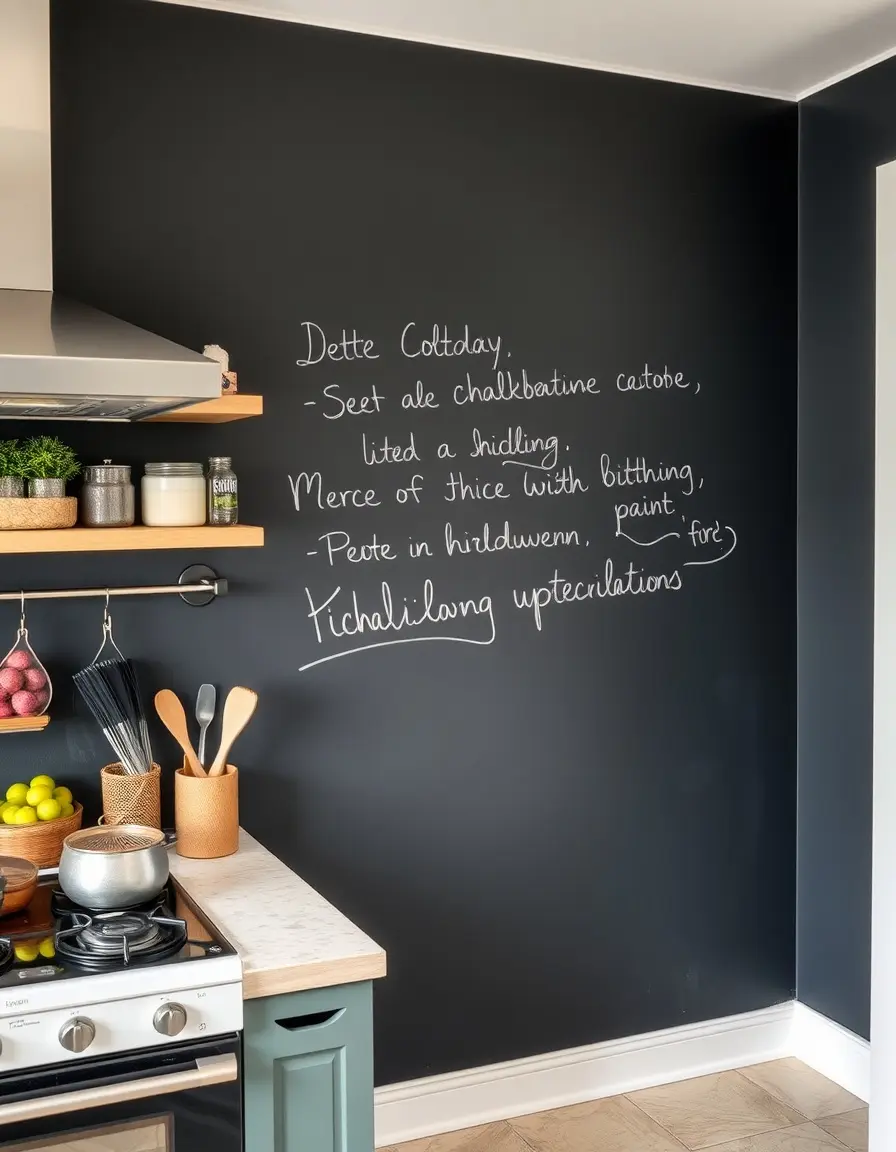 Dette Coltday.
-Seet ale chalkbeatine catobe,
lited a hidling.
Merce of thice with bitthing,
-Peote in hirlduwenn, paint, ford
Yichalilawng uptecrilations